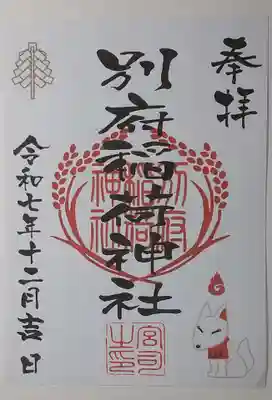 奉拝
別府稲荷神社
別府
稲荷
神社
宮司
之印
令和七年十二月吉日